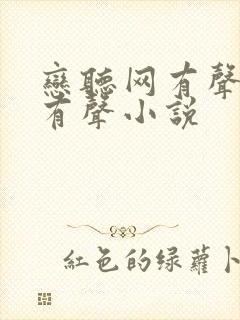 戀聽网有聲
有聲小説
紅色的绿蘿卜